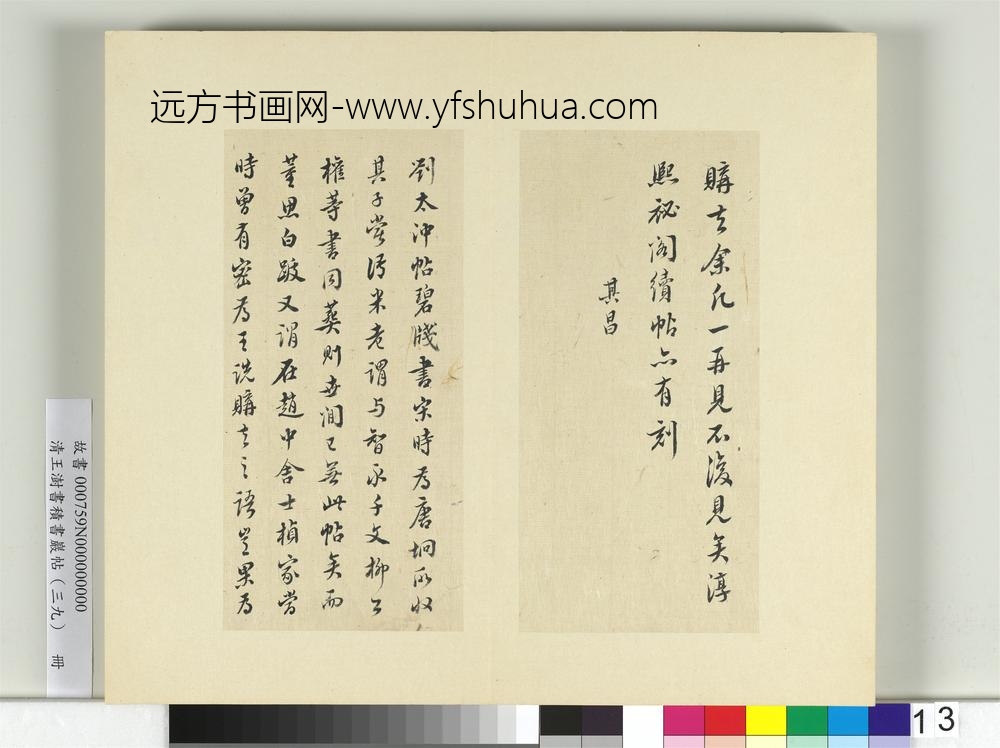 远方书画网-www.yfshuhua.com
購去余凡一再見不復見矣淳
熙祕閣續帖亦有刻
其昌
劉太沖帖碧牋書宋時為唐坰所收
其子嘗得米老謂与智永千文柳公
權等書同葬則世間已無此帖矣而
董思白跋又謂在趙中舍士楨家當
時曾有密為王詵購去之語豈果為
故書 000759N000000000
清王澍書積書巖帖（三九） 冊
13